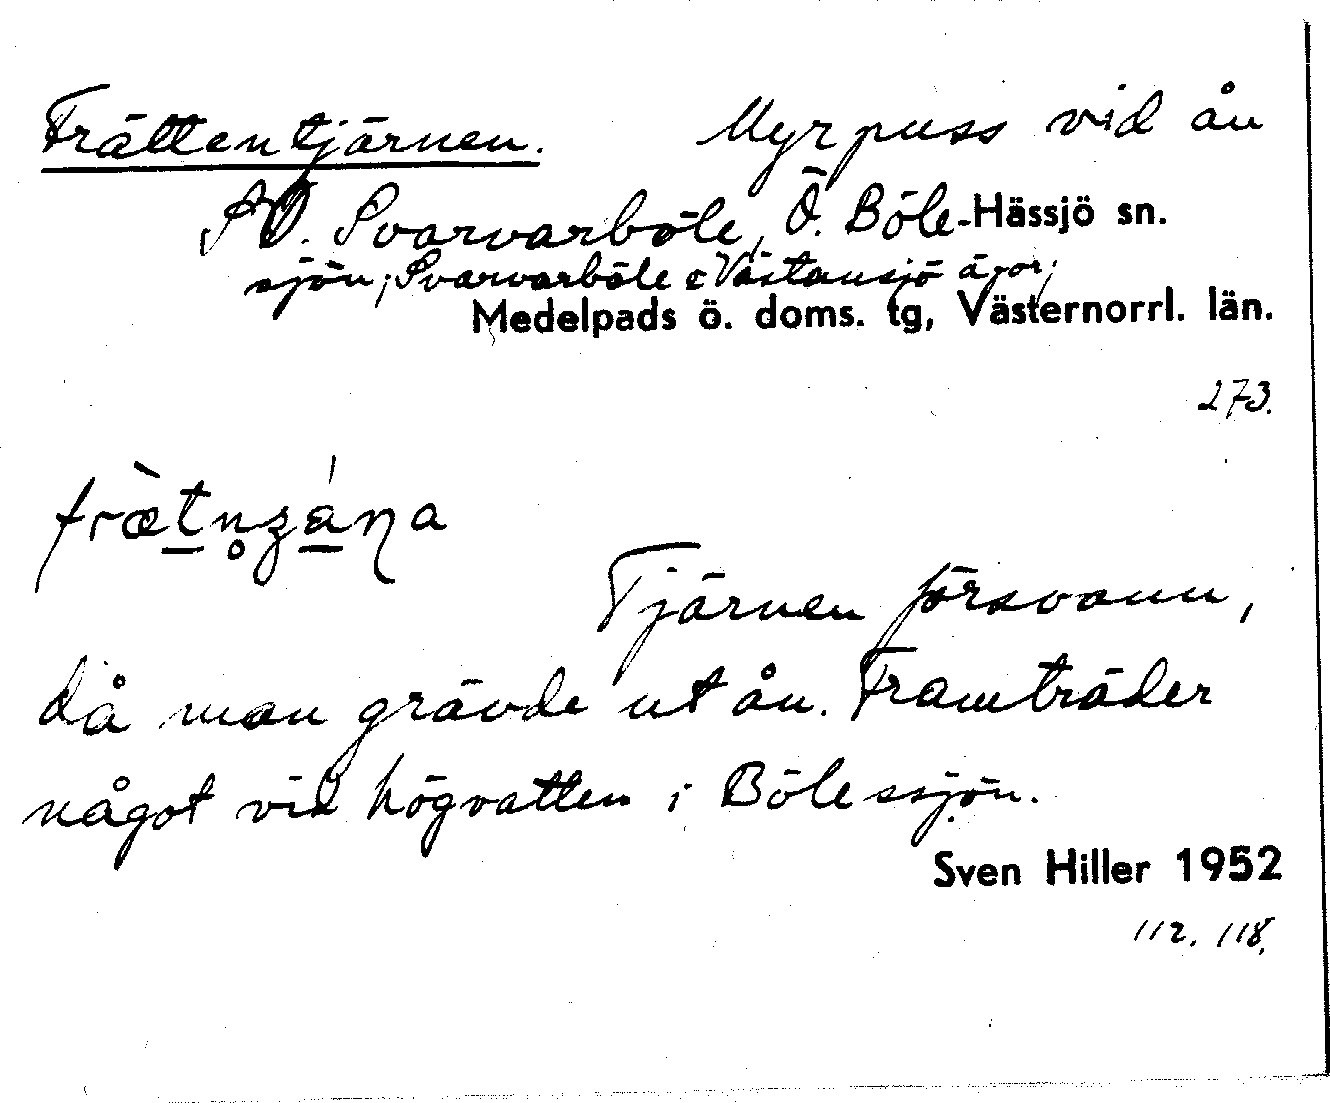 Frättentjärnen. Myrpuss vid ån
SO. Svarvarböle, Ö. Böle-Hässjö sn.
sjön; Svarvarböle o Västansjö ägor;
Medelpads ö. doms. tg, Västernorrl. län.
273.
Tjärnen försvann,
då man grävde ut ån. Framträder
något vid högvatten i Bölessjön.
Sven Hiller 1952
112. 118.